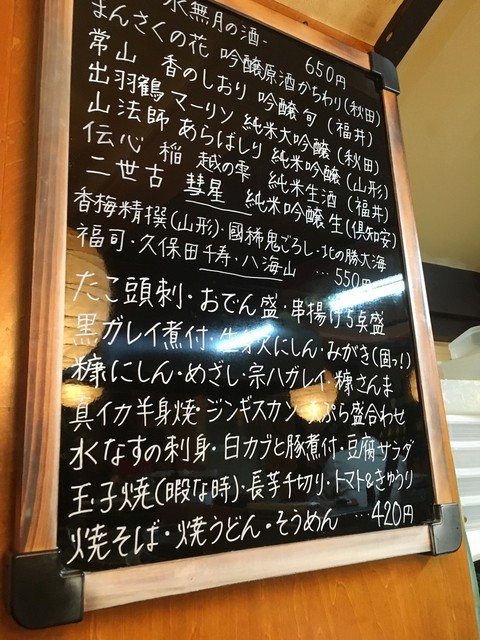 水無月の酒-
650円
まんさくの花 吟醸原酒かちわり(秋田)
常山 香のしおり 吟醸 旬 (福井)
出羽鶴 マーリン 純米大吟醸 (秋田)
山法師 あらばしり 純米吟醸 (山形)
伝心 稲 越の雫 純米生酒 (福井)
二世古 彗星 純米吟醸 生(倶知安)
香梅精撰(山形)・國稀鬼ごろし・北の勝大海
福司・久保田千寿・八海山 …550円
たこ頭刺・おでん盛・串揚げ5点盛
黒ガレイ煮付・にしん・みがき(固っ!)
糠にしん・めざし・宗ハガレイ・糠さんま
真イカ半身焼・ジンギスカン・ぷら盛合わせ
水なすの刺身・白カブと豚煮付・豆腐サラダ
玉子焼(暇な時)・長芋千切り・トマト&きゅうり
焼そば・焼うどん・そうめん …420円